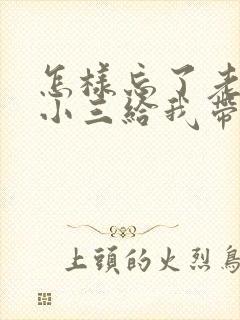 怎样忘了老
小三给我带
上頭的火烈鳥